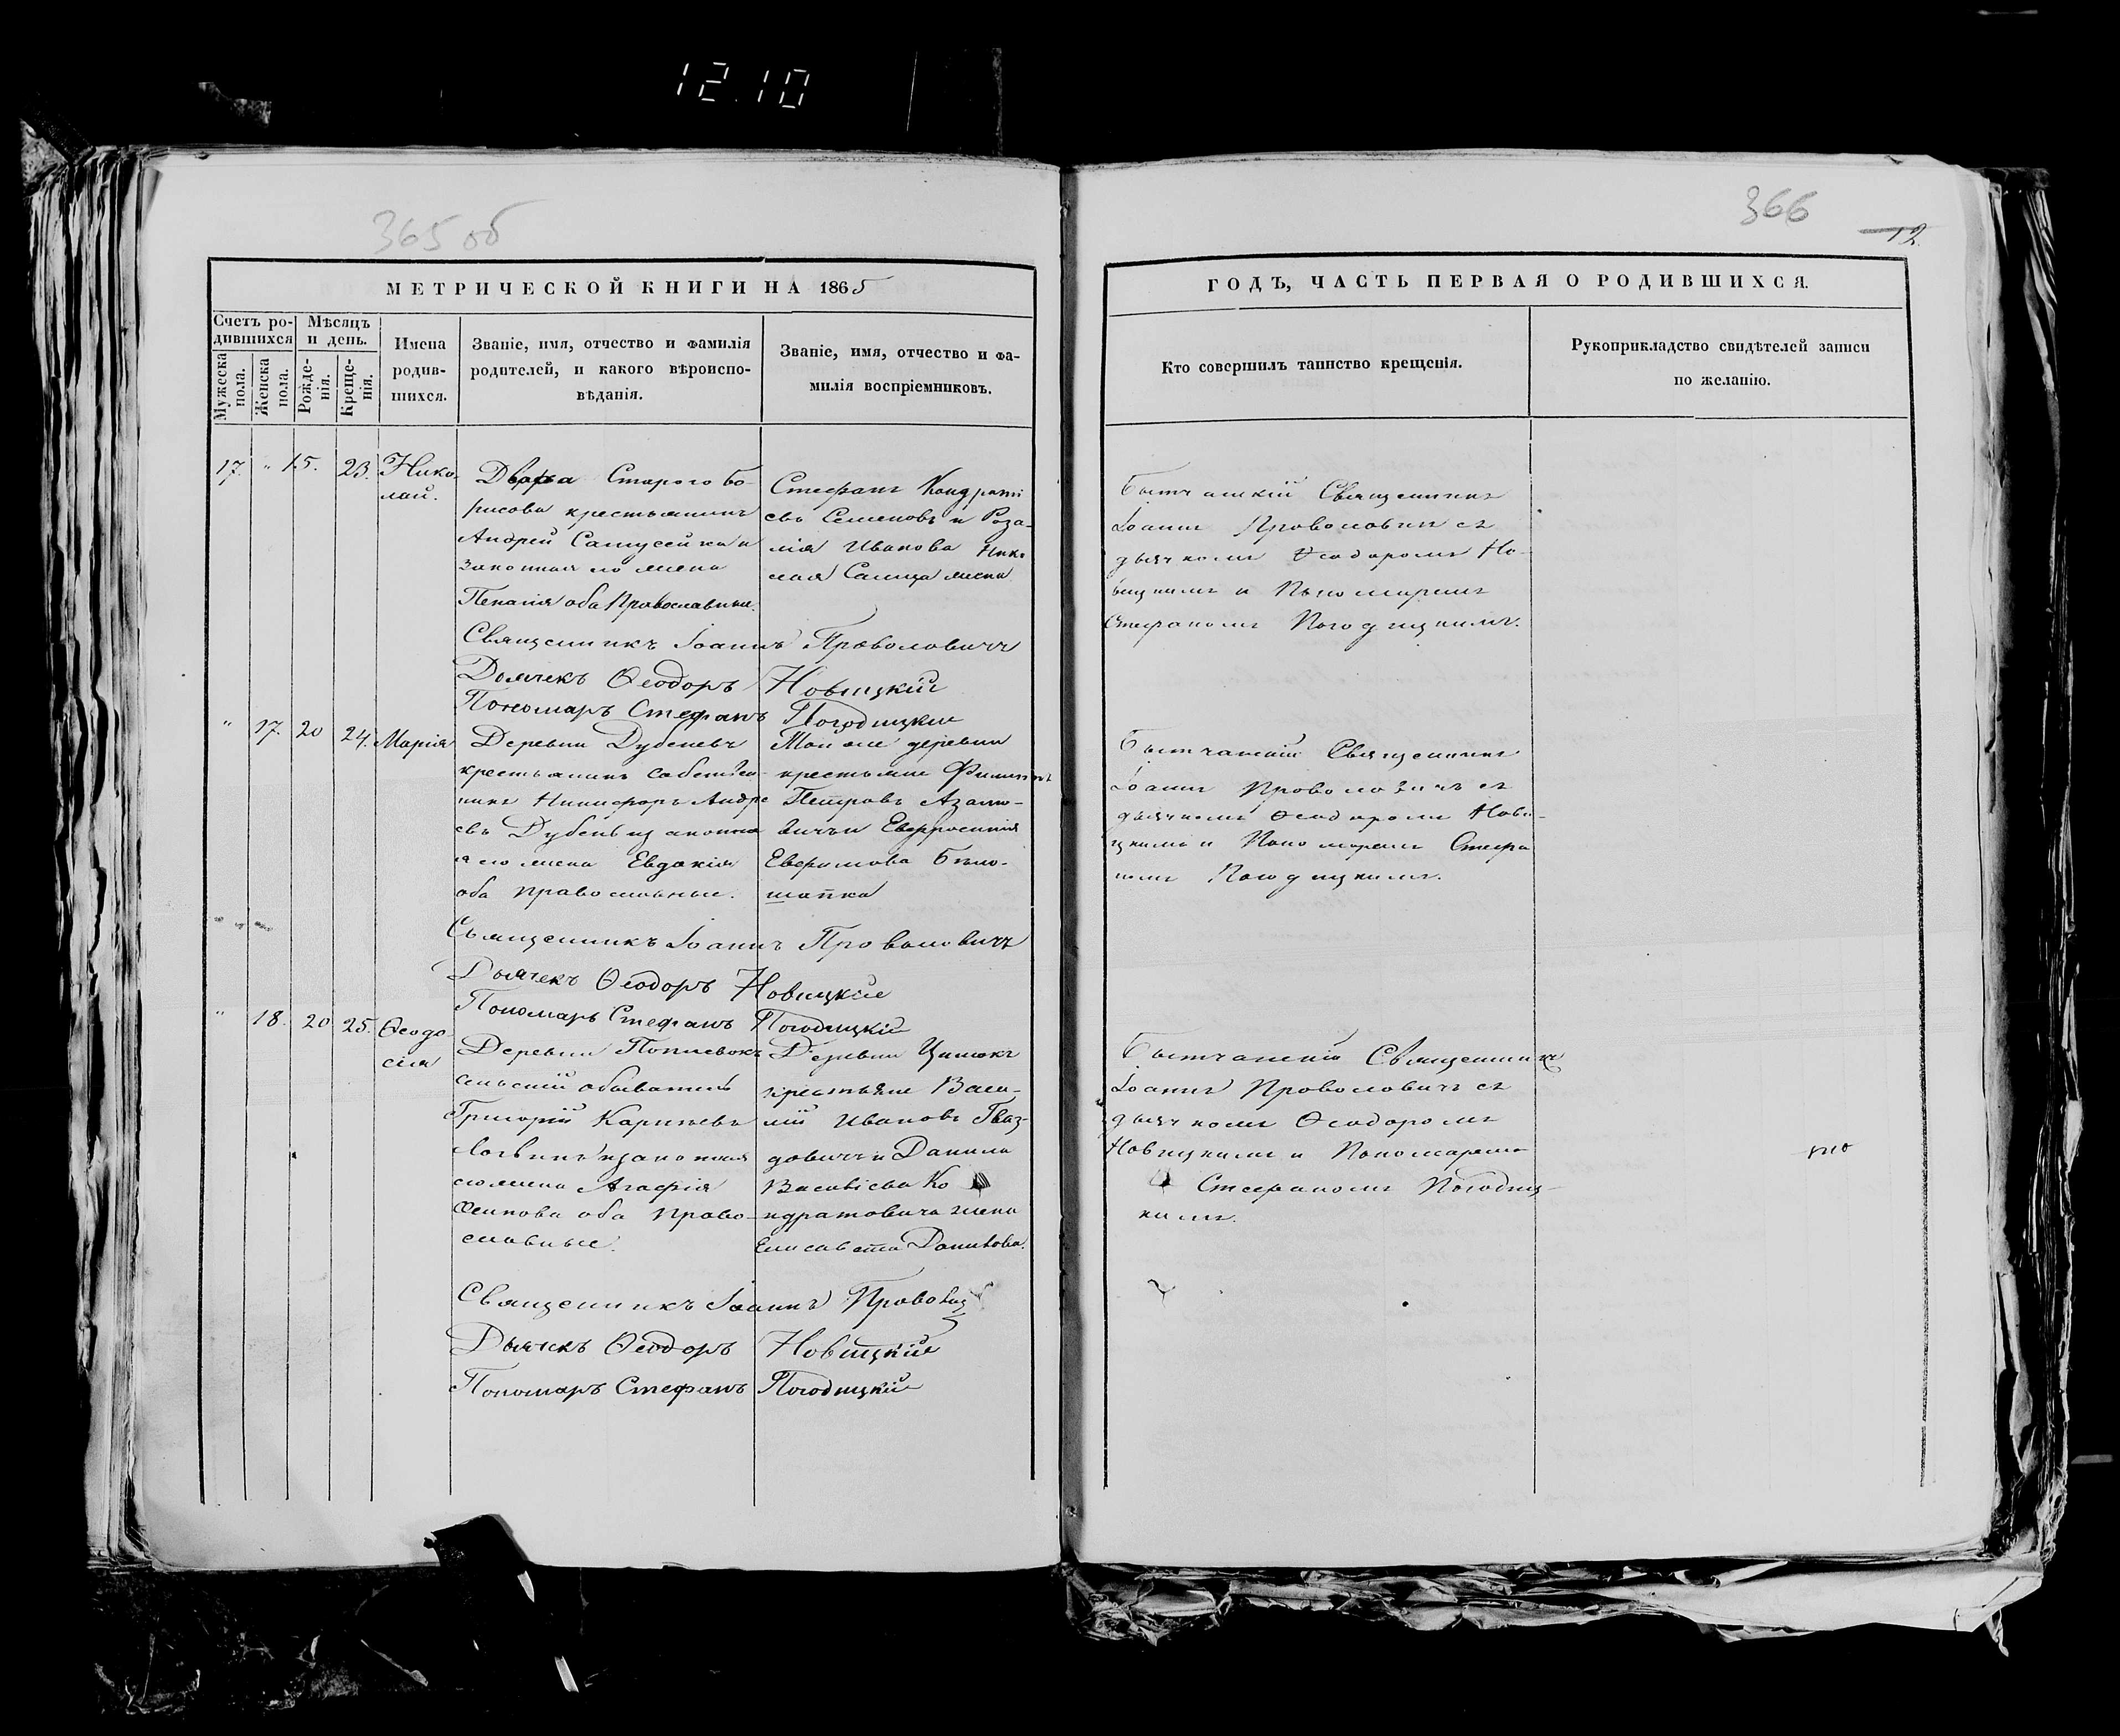 12.10
365 об
МЕТРИЧЕСКОЙ КНИГИ НА 1865
Счетъ ро-
дившихся
Мѣсяцъ
и день.
Мужеска
пола.
Женска
пола.
Рожде-
нія.
Креще-
нія.
Имена
родив-
шихся.
Званіе, имя, отчество и фамилія
родителей, и какого вѣроиспо-
вѣданія.
Званіе, имя, отчество и фа-
милія воспріемниковъ.
17. " 15. 23. Нико-
лай.
Двора Старого Бо-
рисова крестьянинъ
Андрей Самусейка и
законная его жена
оба Православные.
Стефанъ Кондрать
евъ Семеновъ и Роза-
лія Иванова
жена
Священникъ Іоаннъ Проволовичъ
Дьячекъ Ѳеодоръ Новицкій
Пономарь Стефанъ Погодицкій
" 17. 20 24. Марія
Деревни Дубеневъ
крестьянинъ собствен-
никъ Никифоръ Андре
евъ Дубень и законна
я его жена Евдокія
оба православные.
Той же деревни
крестьяне
Петровъ Азаро-
вичъ и Евфросинія
Ефимова Бѣло-
шапка
Священникъ Іоаннъ Проволовичъ
Дьячекъ Ѳеодоръ Новицкій
Пономарь Стефанъ Погодицкій
" 18. 20 25. Ѳеодо
сія
Деревни
сельскій обыватель
Григорій Карнѣевъ
Логвинъ и законная
его жена Агафія
Осипова оба право-
славные.
Деревни
крестьяне Васи-
лій Ивановъ Гваз-
довичъ и Данила
Василіева Ко
ндратовича жена
Елисавета Данилова.
Священникъ Іоаннъ
Дьячекъ Ѳеодоръ Новицкій
Пономарь Стефанъ Погодицкій
366
12.
ГОДЪ, ЧАСТЬ ПЕРВАЯ О РОДИВШИХСЯ.
Кто совершилъ таинство крещенія.
Рукоприкладство свидѣтелей записи
по желанію.
Бытчанскій Священникъ
Іоаннъ Проволовичъ съ
дьячкомъ Ѳеодоромъ Но-
вицкимъ и Пономаремъ
Стефаномъ Погодицкимъ.
Бытчанскій Священникъ
Іоаннъ Проволовичъ съ
дьячкомъ Ѳеодоромъ Нови-
цкимъ и Пономаремъ Стефа
номъ Погодицкимъ.
Бытчанскій Священникъ
Іоаннъ Проволовичъ съ
дьячкомъ Ѳеодоромъ
Новицкимъ и Пономаремъ
Стефаномъ Погодиц-
кимъ.